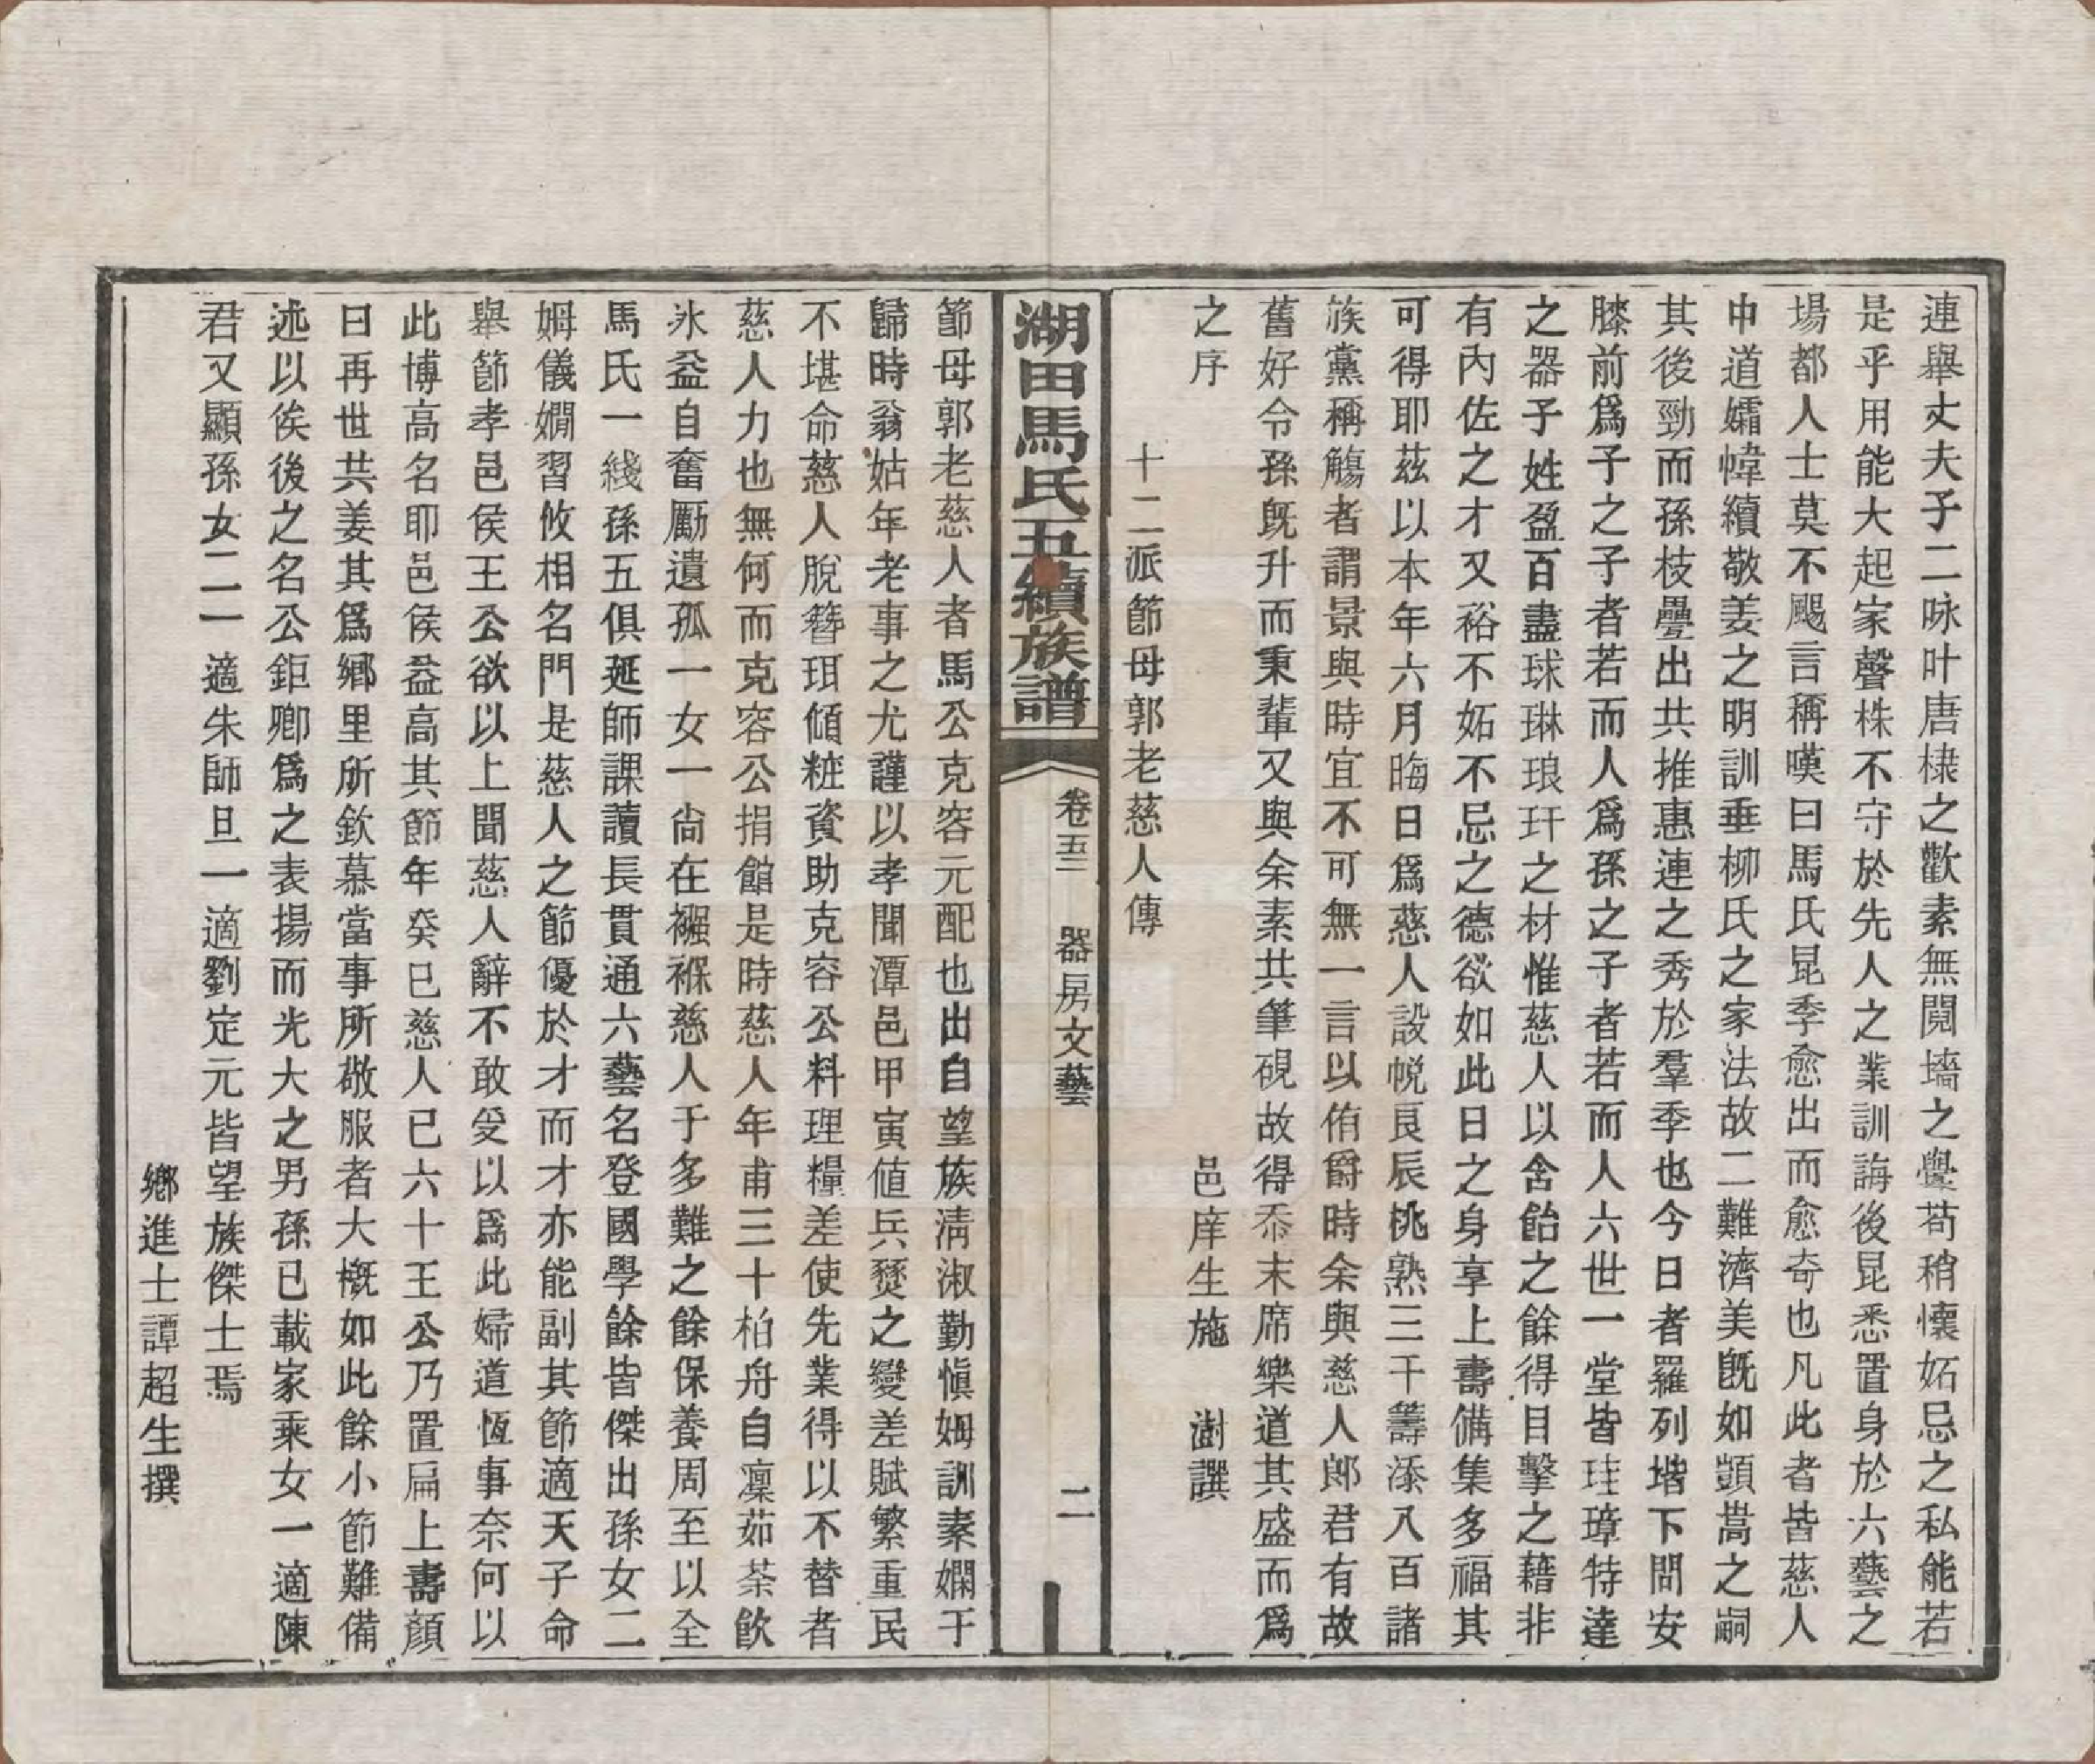 連舉丈夫子二咏叶唐棣之歡素無鬩墻之釁苟稍懷妬忌之私能若
是乎用能大起家聲株不守於先人之業訓誨後昆悉置身於六藝之
場都人士莫不颺言稱嘆曰馬氏昆季愈出而愈奇也凡此者皆慈人
中道孀幃續敬姜之明訓垂柳氏之家法故二難濟美旣如顗暠之嗣
其後勁而孫枝疊出共推惠連之秀於羣季也今日者羅列堦下問安
膝前爲子之子者若而人爲孫之子者若而人六世一堂皆珪璋特達
之器子姓盈百盡球琳琅玕之材惟慈人以含飴之餘得目擊之藉非
有內佐之才又裕不妬不忌之德欲如此日之身享上壽備集多福其
可得耶茲以本年六月晦日爲慈人設帨良辰桃熟三千籌添八百諸
族黨稱觴者謂景與時宜不可無一言以侑爵時余與慈人郎君有故
舊好令孫旣升而秉輩又與余素共筆硯故得忝末席樂道其盛而爲
之序　邑庠生施　澍譔
十二派節母郭老慈人傳
湖田馬氏五續族譜　卷五二　器房文藝　二
節母郭老慈人者馬公克容元配也出自望族淸淑勤愼姆訓素嫻于
歸時翁姑年老事之尤謹以孝聞潭邑甲寅値兵燹之變差賦繁重民
不堪命慈人脫簪珥傾粧資助克容公料理糧差使先業得以不替者
慈人力也無何而克容公捐館是時慈人年甫三十柏舟自凜茹荼飮
氷益自奮勵遺孤一女一尙在襁褓慈人于多難之餘保養周至以全
馬氏一綫孫五俱延師課讀長貫通六藝名登國學餘皆傑出孫女二
姆儀嫺習攸相名門是慈人之節優於才而才亦能副其節適天子命
舉節孝邑侯王公欲以上聞慈人辭不敢受以爲此婦道恆事奈何以
此博高名耶邑侯益高其節年癸巳慈人已六十王公乃置扁上壽顏
曰再世共姜其爲鄕里所欽慕當事所敬服者大槪如此餘小節難備
述以俟後之名公鉅卿爲之表揚而光大之男孫已載家乘女一適陳
君又顯孫女二一適朱師旦一適劉定元皆望族傑士焉
鄕進士譚超生撰